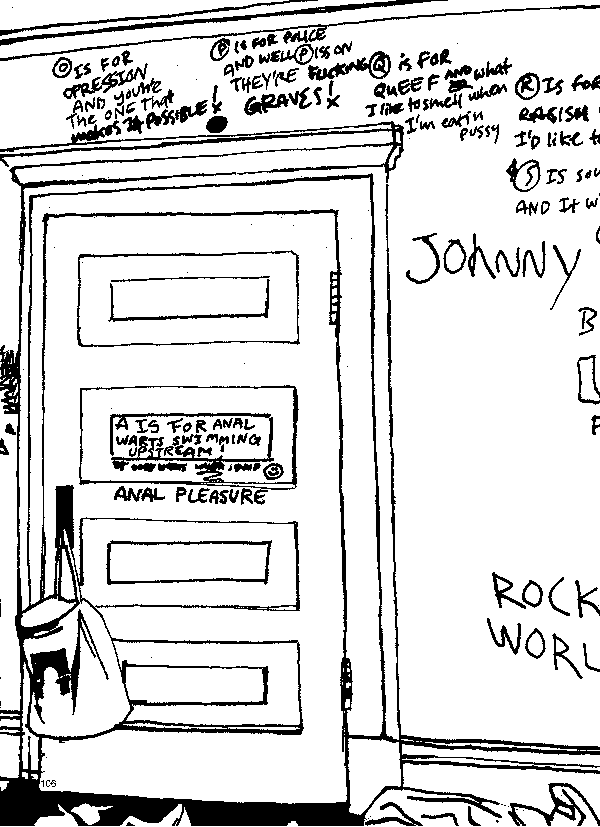 O IS FOR
OPRESSION
AND you're
The ONE That
makes It POSSIBLE!
P IS FOR POLICE
AND WELL PISS ON
THEY'RE FUCKING
GRAVES!
Q iS FOR
QUEEF AND what
I like to smell when
I'm eatin
pussy
R IS FOR
RAGISH
I'D LIKE to
S IS SOU
AND It W
JOHNNY
B
F
A IS FOR ANAL
WARTS SWIMMING
UPSTREAM!
ANAL PLEASURE
ROCK
WORL
106